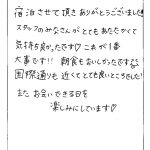 宿泊させて頂きありがとうございました!
スタッフのみなさんがとてもあたたかくて
気持ち良かったです♡これが1番
大事です!!朝食もおいしかったですし
国際通りも近くてとても良いところでした!
またお会いできる日を
楽しみにしています♡